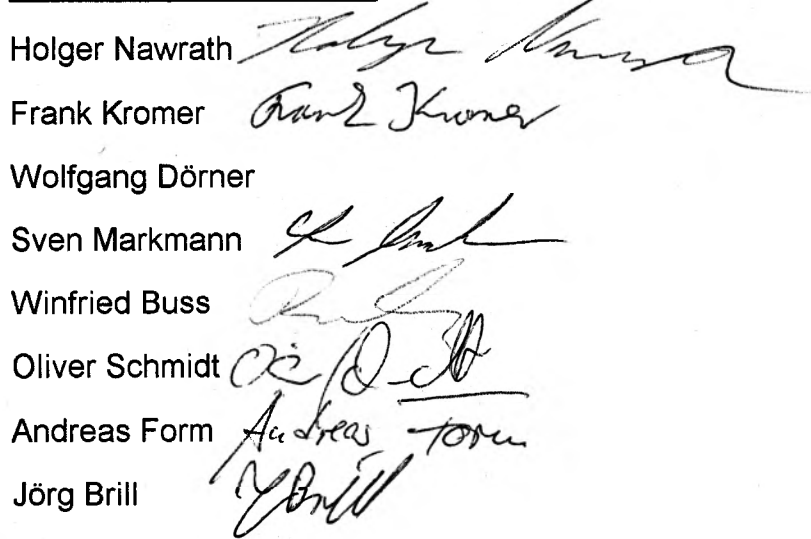 Holger Nawrath
Frank Kromer Frank Kromer
Wolfgang Dörner
Sven Markmann
Winfried Buss
Oliver Schmidt
Andreas Form Andreas Form
Jörg Brill J Brill